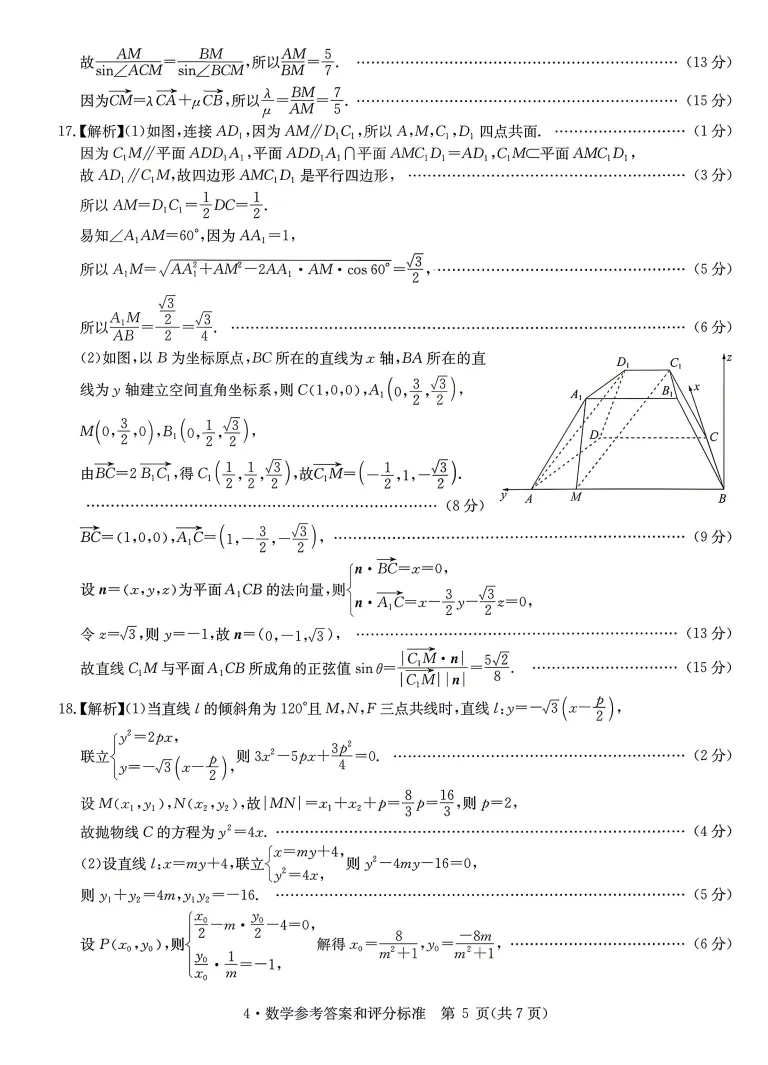 故AM/sin∠ACM=BM/sin∠BCM,所以AM/BM=5/7. ……(13 分)
因为CM→=λCA→+μCB→,所以λ/μ=BM/AM=7/5. ……(15 分)
17.【解析】(1)如图,连接 AD₁,因为 AM∥D₁C₁,所以 A,M,C₁,D₁ 四点共面. ……(1 分)
因为 C₁M∥平面 ADD₁A₁,平面 ADD₁A₁∩平面 AMC₁D₁=AD₁,C₁M⊂平面 AMC₁D₁,
故 AD₁∥C₁M,故四边形 AMC₁D₁ 是平行四边形, ……(3 分)
所以 AM=D₁C₁=1/2DC=1/2.
易知∠A₁AM=60°,因为 AA₁=1,
所以 A₁M=√(AA₁²+AM²-2AA₁·AM·cos 60°)=√3/2, ……(5 分)
所以A₁M/AB=(√3/2)/2=√3/4. ……(6 分)
(2)如图,以 B 为坐标原点,BC 所在的直线为 x 轴,BA 所在的直
线为 y 轴建立空间直角坐标系,则 C(1,0,0),A₁(0,3/2,√3/2),
M(0,3/2,0),B₁(0,1/2,√3/2),
由BC→=2B₁C₁→,得 C₁(1/2,1/2,√3/2),故C₁M→=(-1/2,1,-√3/2).
……(8 分)
D₁ C₁ z
A₁ B₁ x
D C
y A M B
BC→=(1,0,0),A₁C→=(1,-3/2,-√3/2), ……(9 分)
设 n=(x,y,z)为平面 A₁CB 的法向量,则{n·BC→=x=0,
n·A₁C→=x-3/2y-√3/2z=0,
令 z=√3,则 y=-1,故 n=(0,-1,√3), ……(13 分)
故直线 C₁M 与平面 A₁CB 所成角的正弦值 sin θ=|C₁M→·n|/|C₁M→||n|=5√2/8. ……(15 分)
18.【解析】(1)当直线 l 的倾斜角为 120°且 M,N,F 三点共线时,直线 l:y=-√3(x-p/2),
联立{y²=2px,
y=-√3(x-p/2),则 3x²-5px+3p²/4=0. ……(2 分)
设 M(x₁,y₁),N(x₂,y₂),故|MN|=x₁+x₂+p=8/3p=16/3,则 p=2,
故抛物线 C 的方程为 y²=4x. ……(4 分)
(2)设直线 l:x=my+4,联立{x=my+4,
y²=4x,则 y²-4my-16=0,
则 y₁+y₂=4m,y₁y₂=-16. ……(5 分)
设 P(x₀,y₀),则{x₀/2-m·y₀/2-4=0,
y₀/x₀·1/m=-1,解得 x₀=8/(m²+1),y₀=-8m/(m²+1), ……(6 分)
4·数学参考答案和评分标准 第 5 页(共 7 页)